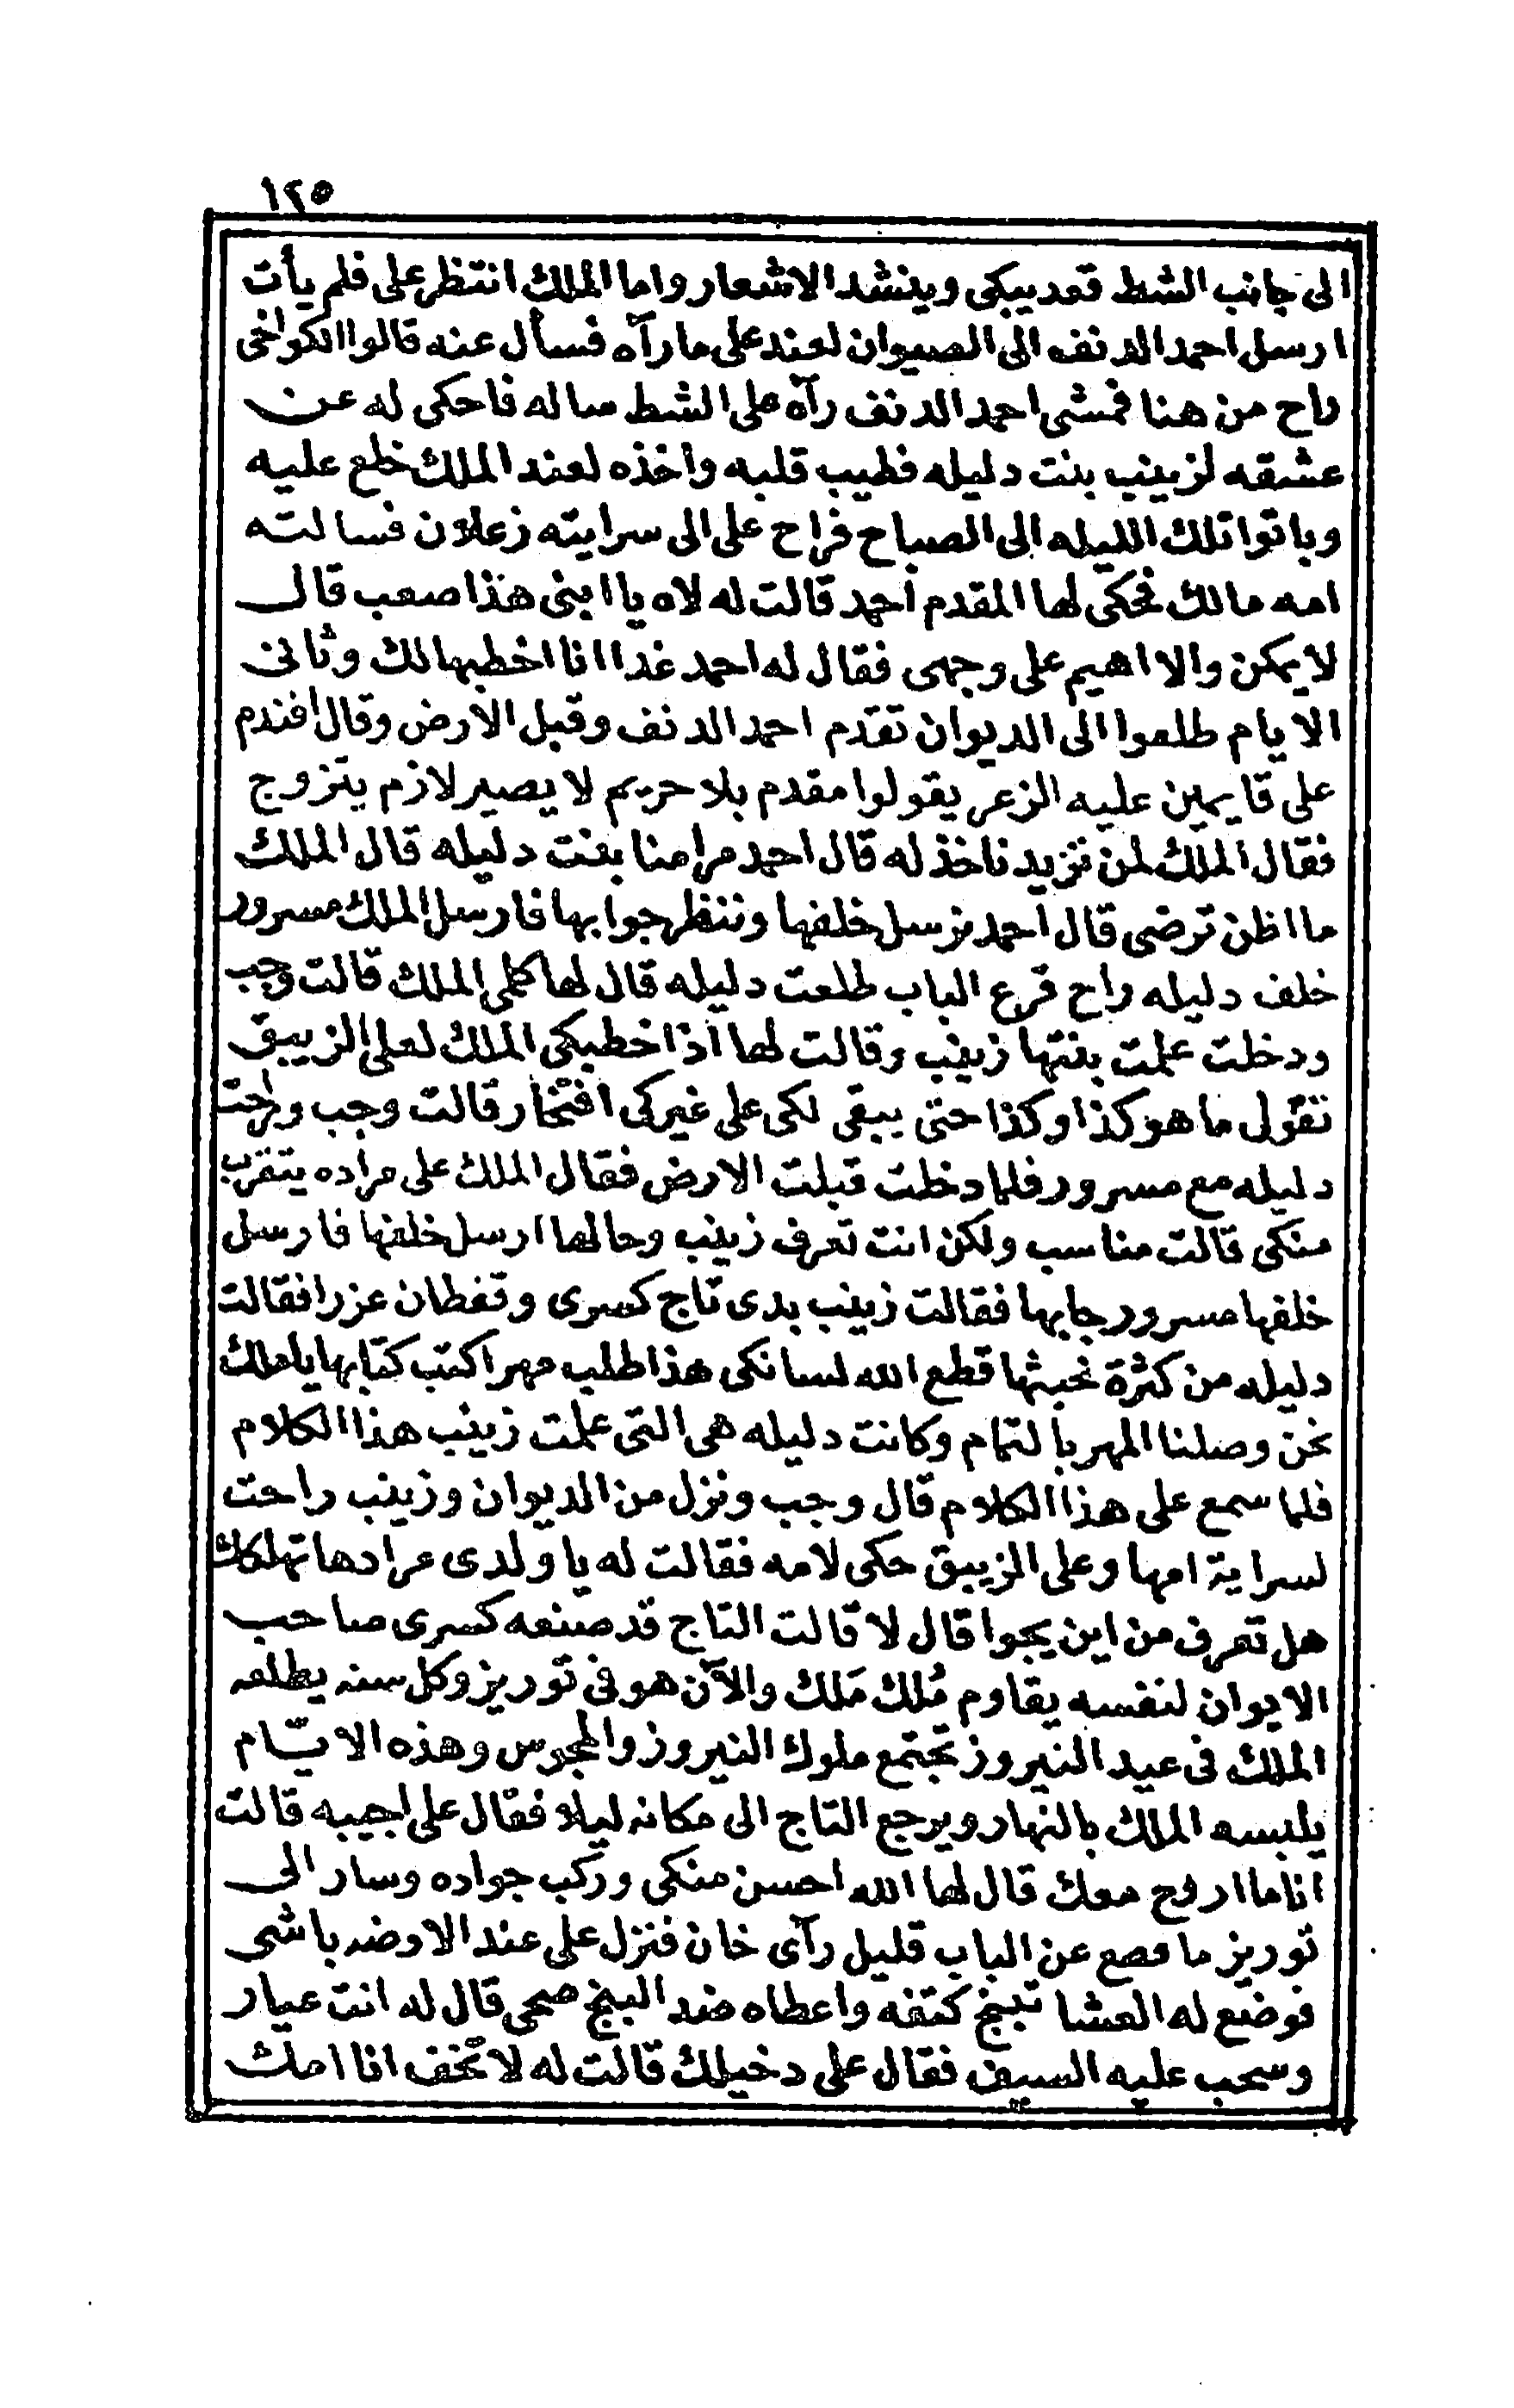 ١٢٥
الى جانب الشط قعد يبكى وينشد الاشعار واما الملك انتظر على فلم يأت
ارسل احمد الدنف الى الصيوان لعند على ما رآه فسأل عنه قالوا الكواخى
راح من هنا فمشى احمد الدنف رآه على الشط ساله فاحكى له عن
عشقه لزينب بنت دليله فطيب قلبه واخذه لعند الملك خلع عليه
وباتوا تلك الليله الى الصباح فراح على الى سرايته زعلان فسالته
امه مالك فحكى لها المقدم احمد قالت له لاه يا ابنى هذا صعب قال
لا يمكن والا اهيم على وجهى فقال له احمد غدا انا اخطبها لك وثانى
الايام طلعوا الى الديوان تقدم احمد الدنف وقبل الارض وقال افندم
على قايمين عليه الزعر يقولوا مقدم بلا حريم لا يصير لازم يتزوج
فقال الملك لمن تريد ناخذ له قال احمد مرامنا بنت دليله قال الملك
ما اظن ترضى قال احمد نرسل خلفها وننظر جوابها فارسل الملك مسرور
خلف دليله راح قرع الباب طلعت دليله قال لها كلمى الملك قالت وجب
ودخلت علمت بنتها زينب وقالت لها اذا خطبكى الملك لعلى الزيبق
تقولى ما هو كذا وكذا حتى يبقى لكى على غيركى افتخار قالت وجب وراحت
دليله مع مسرور فلما دخلت قبلت الارض فقال الملك على مراده يتقرب
منكى قالت مناسب ولكن انت تعرف زينب وحالها ارسل خلفها فارسل
خلفها مسرور جابها فقالت زينب بدى تاج كسرى وقفطان عزرا فقالت
دليله من كثرة خبثها قطع الله لسانكى هذا طلب مهر اكتب كتابها يا ملك
نحن وصلنا المهر بالتمام وكانت دليله هى التى علمت زينب هذا الكلام
فلما سمع على هذا الكلام قال وجب ونزل من الديوان وزينب راحت
لسراية امها وعلى الزيبق حكى لامه فقالت له يا ولدى مرادها تهلكك
هل تعرف من اين يجوا قال لا قالت التاج قد صنعه كسرى صاحب
الايوان لنفسه يقاوم مُلك مَلك والآن هو فى توريز وكل سنه يطلعه
الملك فى عيد النيروز تجتمع ملوك النيروز والمجوس وهذه الايّام
يلبسه الملك بالنهار ويرجع التاج الى مكانه ليلا فقال على اجيبه قالت
انا ما اروح معك قال لها الله احسن منكى وركب جواده وسار الى
توريز ما وصع عن الباب قليل رآى خان فنزل على عند الاوضه باشى
فوضع له العشا تبنج كتفه واعطاه ضد البنج صحى قال له انت عيار
وسحب عليه السيف فقال على دخيلك قالت له لا تخف انا امك